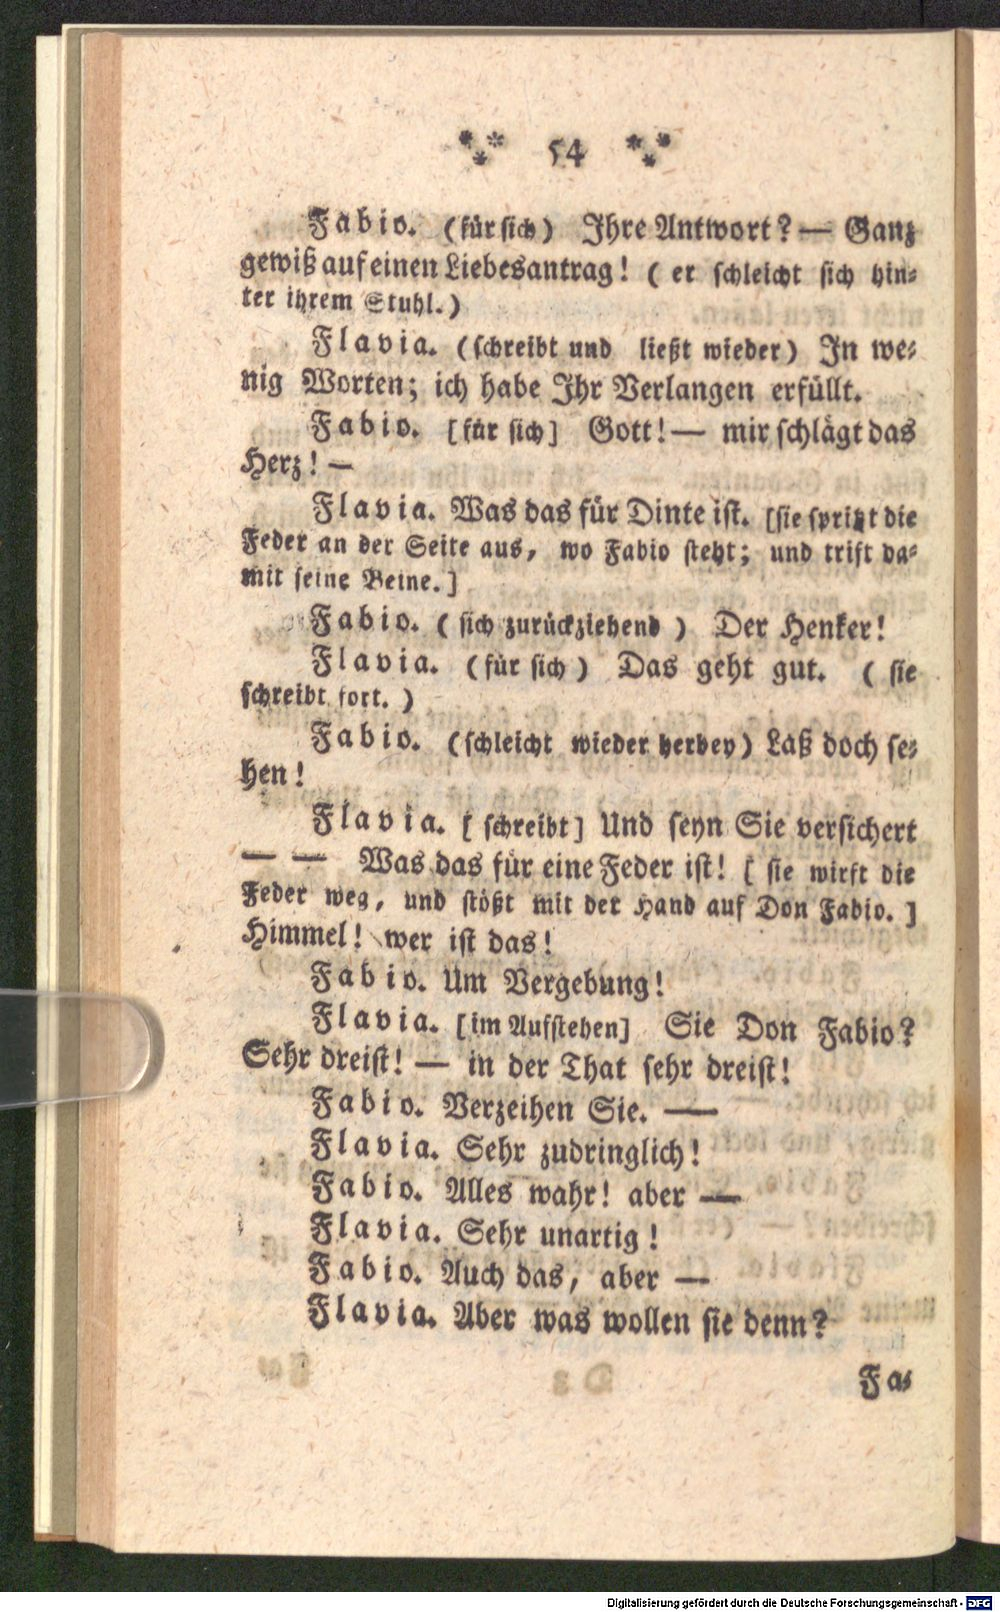 ⁂ 54 ⁂
Fabio. (für sich) Ihre Antwort? — Ganz
gewiß auf einen Liebesantrag! ( er schleicht sich hin-
ter ihrem Stuhl.)
Flavia. (schreibt und ließt wieder) In we-
nig Worten; ich habe Ihr Verlangen erfüllt.
Fabio. [für sich] Gott! — mir schlägt das
Herz! —
Flavia. Was das für Dinte ist. [sie spritzt die
Feder an der Seite aus, wo Fabio steht; und trift da-
mit seine Beine.]
Fabio. ( sich zurückziehend ) Der Henker!
Flavia. (für sich) Das geht gut. ( sie
schreibt fort. )
Fabio. (schleicht wieder herbey) Laß doch se-
hen!
Flavia. [ schreibt] Und seyn Sie versichert
— — Was das für eine Feder ist! [ sie wirft die
Feder weg, und stößt mit der Hand auf Don Fabio. ]
Himmel! wer ist das!
Fabio. Um Vergebung!
Flavia. [im Aufstehen] Sie Don Fabio?
Sehr dreist! — in der That sehr dreist!
Fabio. Verzeihen Sie. —
Flavia. Sehr zudringlich!
Fabio. Alles wahr! aber —
Flavia. Sehr unartig!
Fabio. Auch das, aber —
Flavia. Aber was wollen sie denn?
Fa-
Digitalisierung gefördert durch die Deutsche Forschungsgemeinschaft - DFG